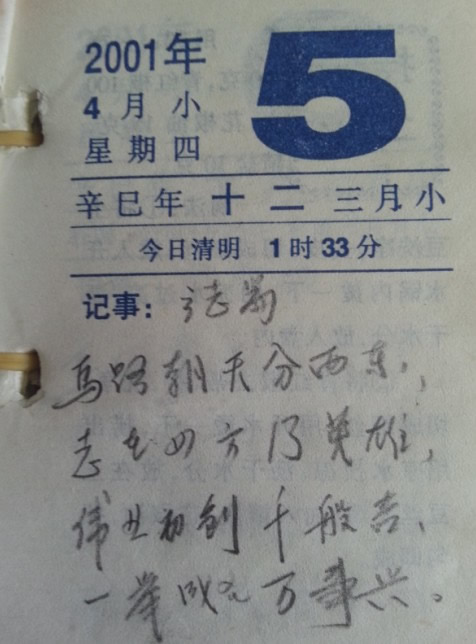 2001年
5
4月小
星期四
辛巳年 十二 三月小
今日清明 1时33分
记事:
马路朝天分西东,
志在四方乃英雄,
伟业初创千般苦,
一举成 万事兴。